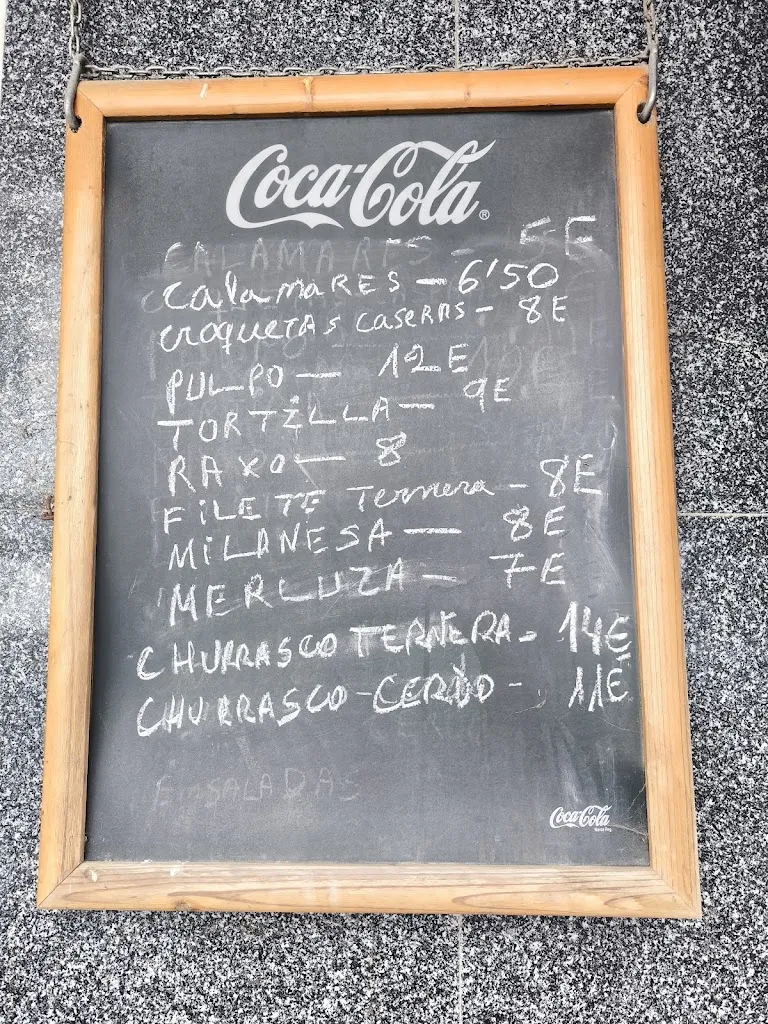 Coca-Cola®
CALAMARES - 5E
calamARES - 6'50
croquetas caseras - 8E
PULPO - 12E
TORTiLLA - 9E
RAXO - 8
FiLETE Ternera - 8E
MiLANESA - 8E
MERLUZA - 7E
CHURRASCO TERNERA - 14E
CHURRASCO - CERDO - 11E
ENSALADAS
Coca-Cola